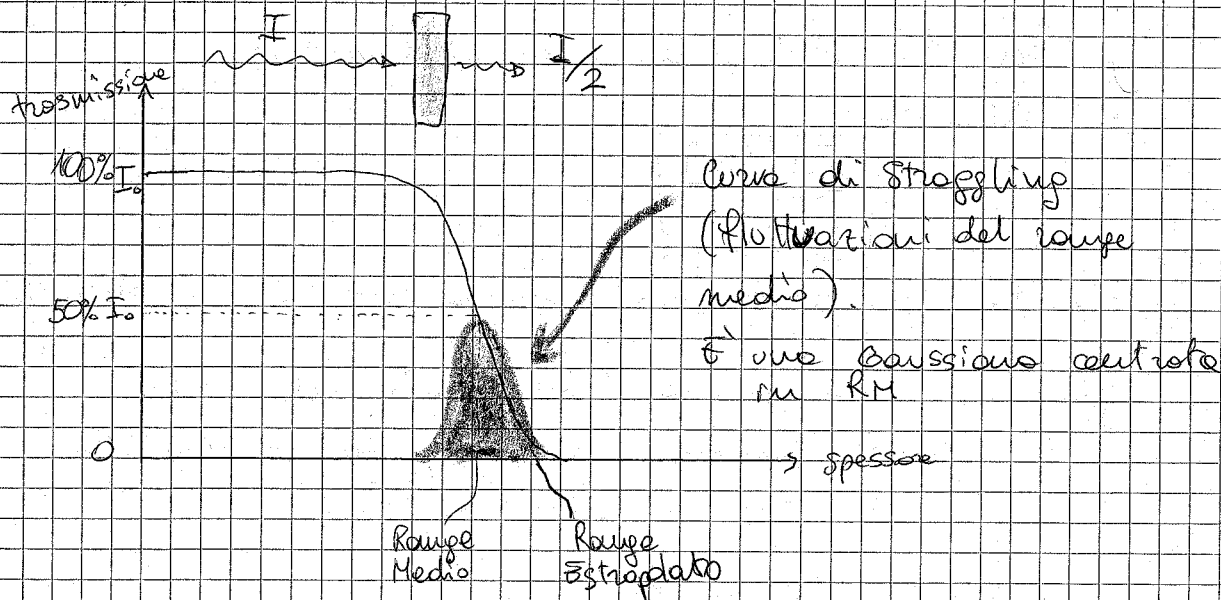 I
I/2
trasmissione
100% I₀
Curva di Straggling
(fluttuazioni del range
medio).
50% I₀
È una Gaussiana centrata
in RM
0
spessore
Range
Medio
Range
Estrapolato